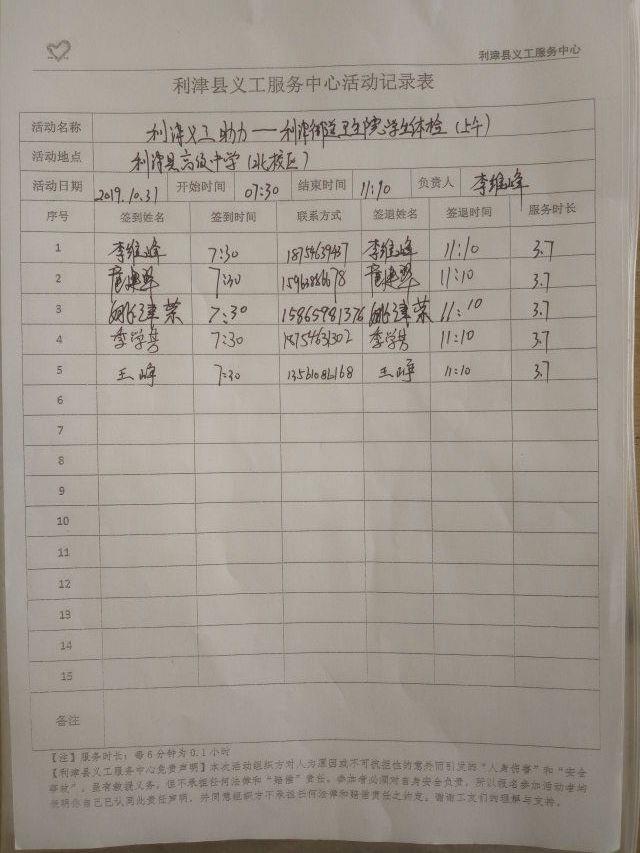 利津县义工服务中心
利津县义工服务中心活动记录表
活动名称 利津义工助力——利津街道卫生院学生体检（上午）
活动地点 利津县高级中学（北校区）
活动日期 2019.10.31 开始时间 07:30 结束时间 11:10 负责人 李维峰
序号 签到姓名 签到时间 联系方式 签退姓名 签退时间 服务时长
1 李维峰 7:30 李维峰 11:10 3.7
2 7:30 11:10 3.7
3 7:30 15865981376 11:10 3.7
4 李学芳 7:30 18754631302 李学芳 11:10 3.7
5 王峥 7:30 王峥 11:10 3.7
6
7
8
9
10
11
12
13
14
15
备注
【注】服务时长：每6分钟为0.1小时
【利津县义工服务中心免责声明】本次活动组织方对人为原因或不可抗拒性的意外而引发的“人身伤害”和“安全
事故”，虽有救援义务，但不承担任何法律和“赔偿”责任。参加者必须对自身安全负责，所以报名参加活动者均
说明你自己已认同此责任声明，并同意组织方不承担任何法律和赔偿责任之约定。谢谢工友们的理解与支持。